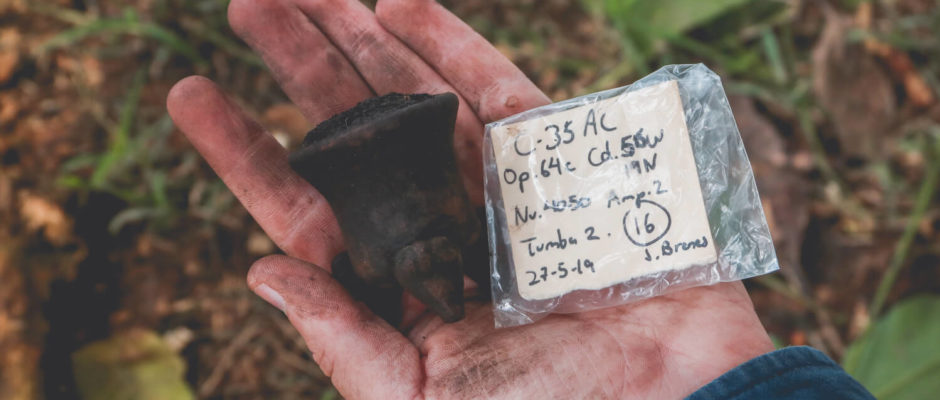 C-35 AC
Op.64c Cd.56W
19N
Nv.4050 Amp.2
Tumba 2. 16
27-5-19 J. Brenes